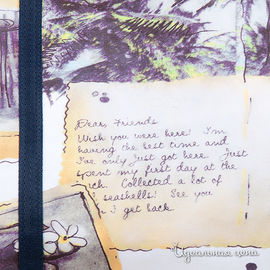 Dear Friends
Wish you were here! I'm
having the best time and
I've only just got here. Just
spent my first day at the
ch. Collected a lot of
seashells! See you
I get back
Идеальная цена